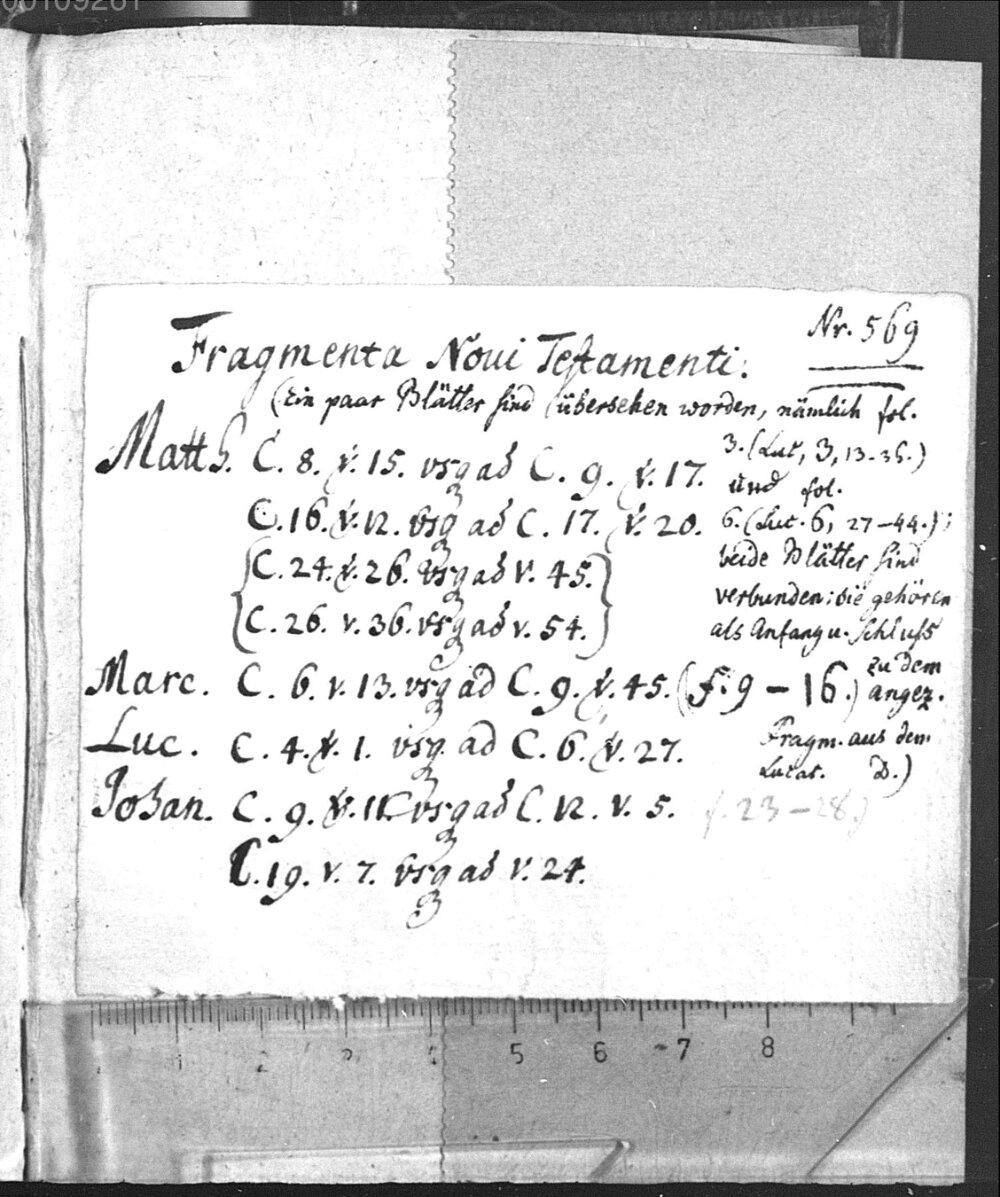 00109261
Nr. 569
Fragmenta Noui Testamenti.
(Ein paar Blätter sind übersehen worden, nämlich fol.
3. (Luk, 3, 13-36.)
und fol.
6. (Luc. 6, 27-44.);
beide Blätter sind
verbunden; sie gehören
als Anfang u. Schluss
zu dem
angez.
Fragm. aus dem
Lucas. D.)
Matth. C. 8. v. 15. vsq ad C. 9. v. 17.
C. 16. v. 12. vsq ad C. 17. v. 20.
{C. 24. v. 26. vsq ad v. 45.}
{C. 26. v. 36. vsq ad v. 54.}
Marc. C. 6. v. 13. vsq ad C. 9. v. 45. (F. 9 - 16.)
Luc. C. 4. v. 1. vsq ad C. 6. v. 27.
Johan. C. 9. v. 11. vsq ad C. 12. v. 5. (f. 23-28)
C. 19. v. 7. vsq ad v. 24.
1 2 3 4 5 6 7 8